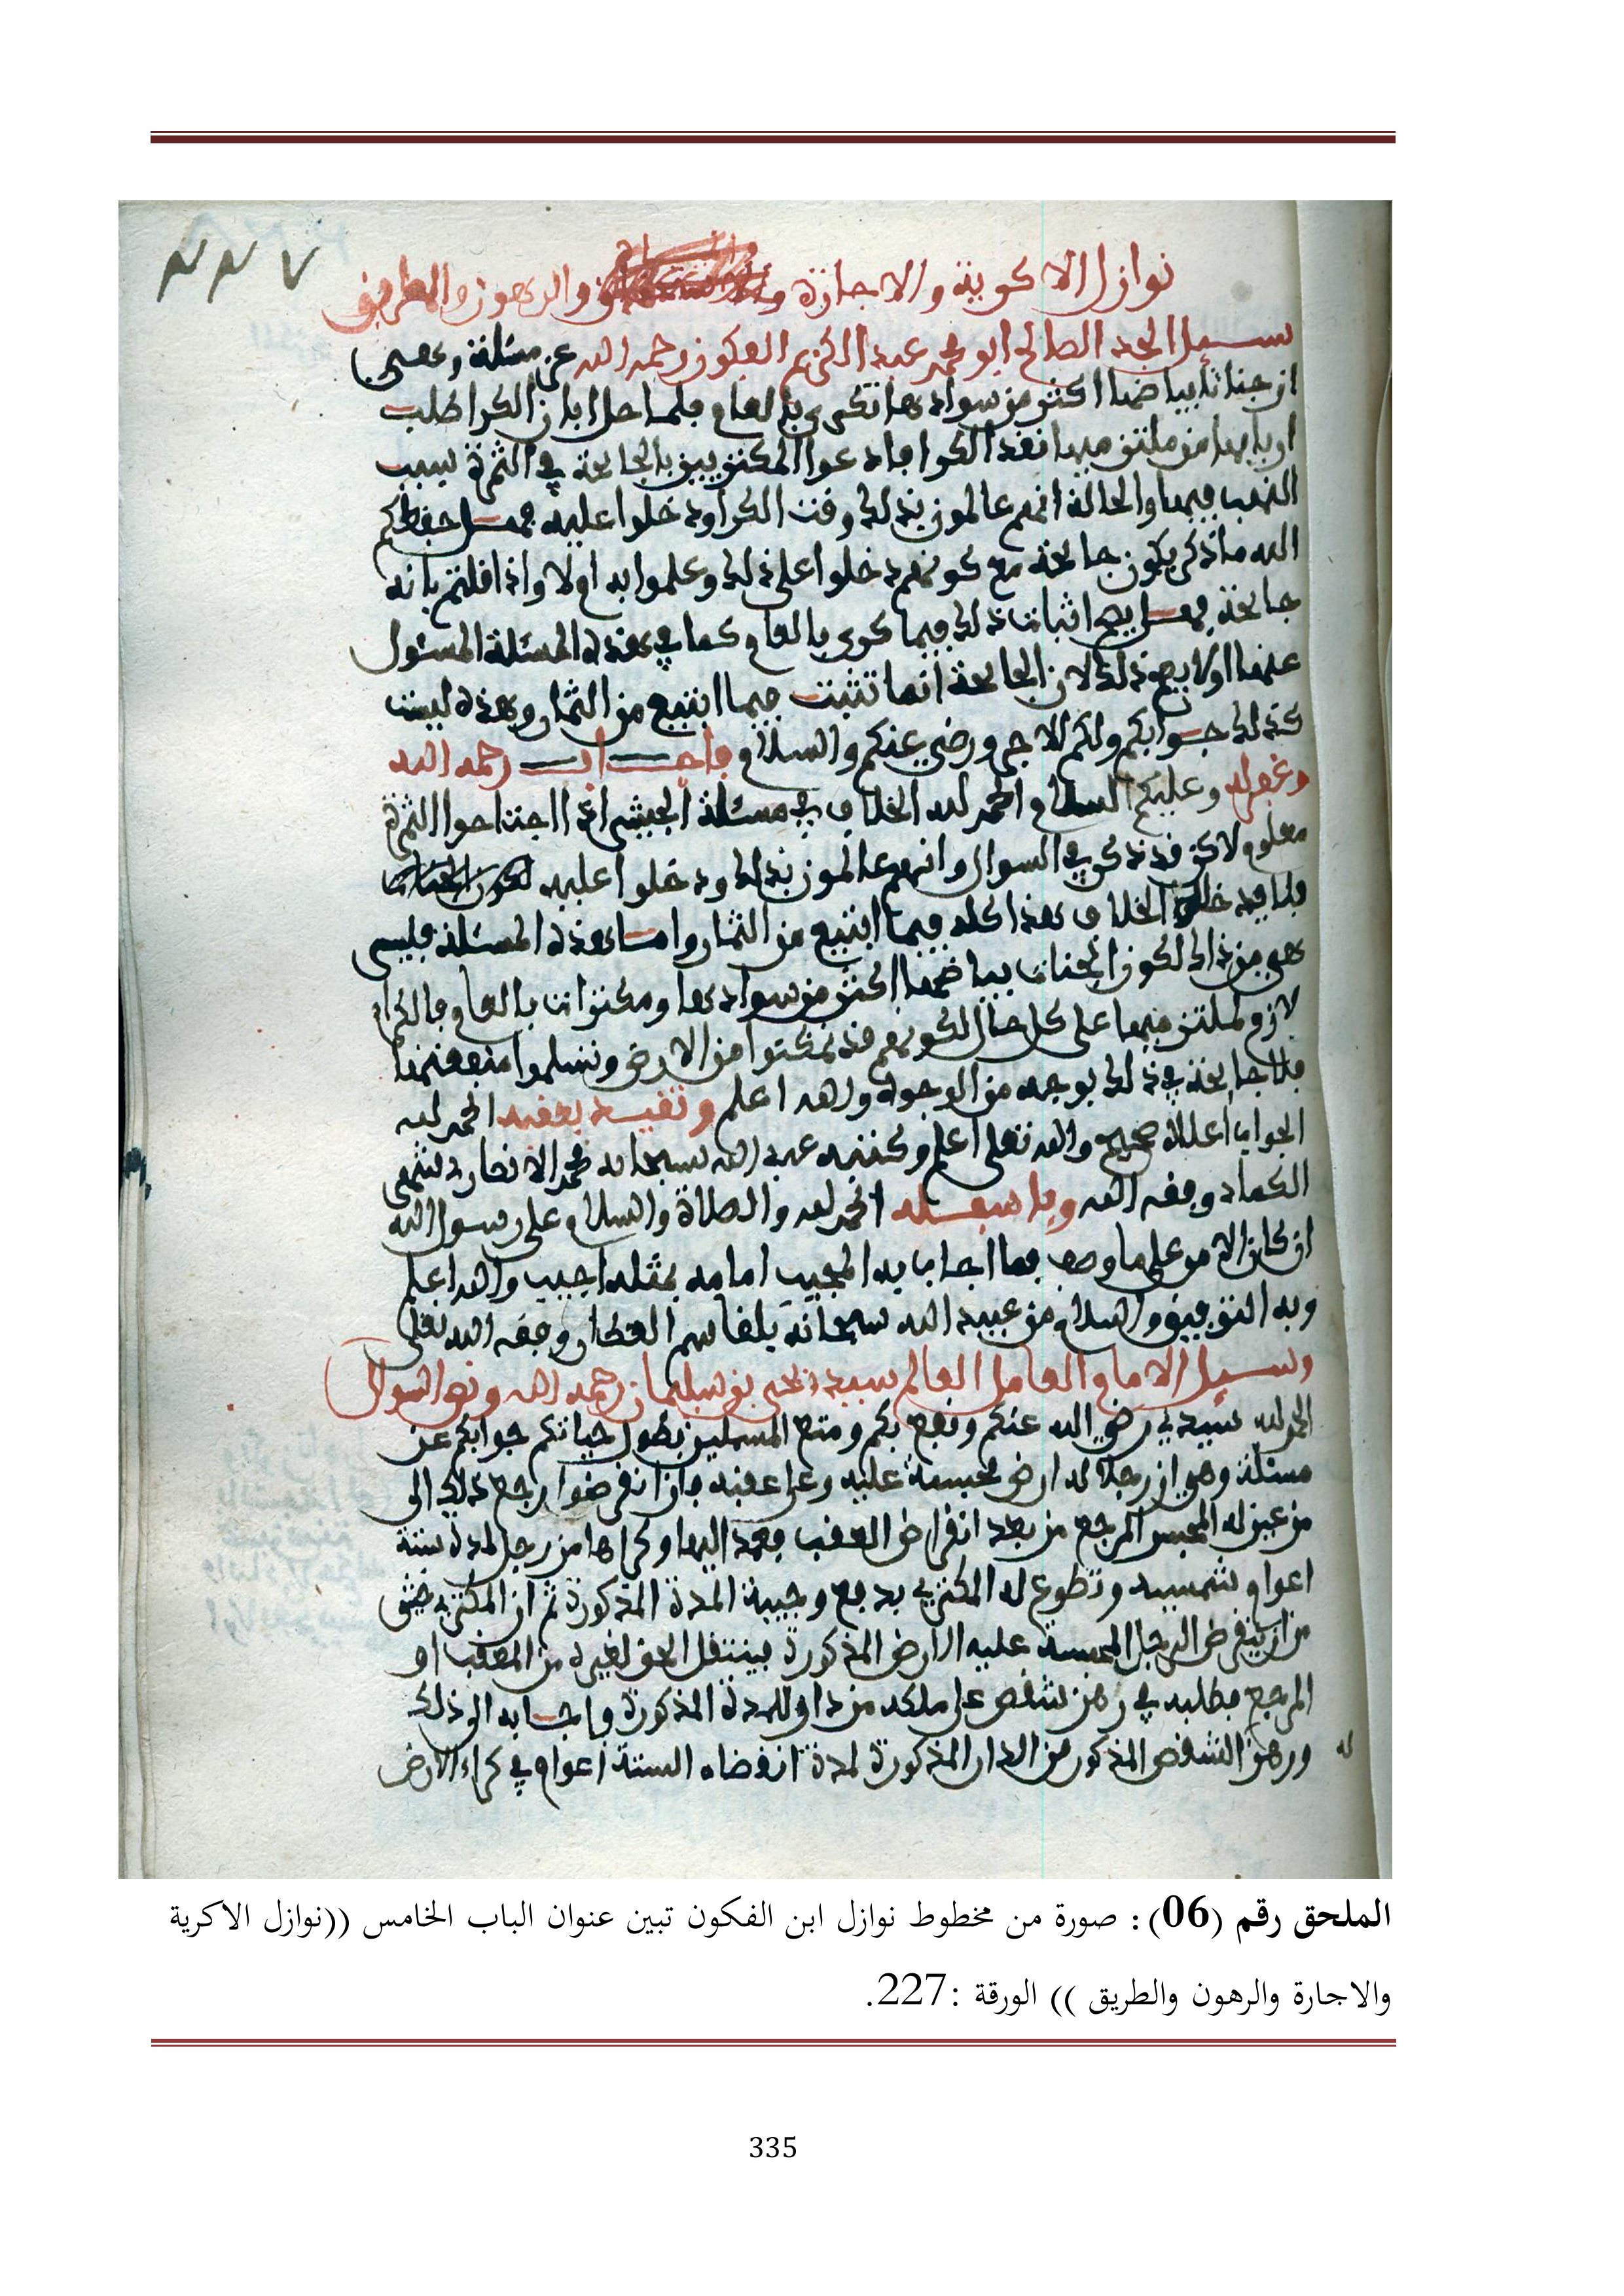 ٢٢٧
نوازل الاكرية والاجارة والرهون والطريق
سيل الجد الصالح ابو محمد عبد الكريم الفكون رحمه الله عن مسئلة وهي
ان جناتا بياضها اكثر من سوادها تكرى بالعام فلما حل ابان الكرا طلب
اربابها من ملتزميها نقد الكرا فادعوا المكتريين بالجائحة في الثمرة بسبب
النهب فيها والحالة انهم عالمون بذلك وقت الكرا ودخلوا عليه فهل حفظكم
الله ما ذكر يكون جائحة مع كونهم دخلوا على ذلك وعلموا به اولا واذا قلتم بانه
جائحة فهل يصح اثبات ذلك فيما كرى بالعام كما في هذه المسئلة المسئول
عنها اولا يصح ذلك لان الجائحة انما تثبت فيما ابتيع من الثمار وهذه ليست
كذلك جوابكم ولكم الاجر ورضي عنكم والسلام فاجاب رحمه الله
وغفر له وعليكم السلام الحمد لله الخلاف في مسئلة الجيش اذا اجتاحوا الثمرة
معلوم لاكن قد ذكر في السوال وانهم عالمون بذلك ودخلوا عليه
فلا يدخله الخلاف هذا كله فيما ابتيع من الثمار واما هذه المسئلة فليس
هي من ذلك لكون الجنات بياضها اكثر من سوادها ومكترات بالعام فالكراء
لازم لملتزميها على كل حال لكونهم قد تمكنوا من الارض وتسلموا منفعتها
فلا جائحة في ذلك بوجه من الوجوه والله اعلم وتقيد بعقبه الحمد لله
الجواب اعلاه صحيح والله تعلى اعلم وكتبه عبد الله سبحانه محمد الانصار
الكماد وفقه الله وباسفله الحمد لله والصلاة والسلام على رسول الله
ان كان الامر على ما وصف فما اجاب به المجيب امامه بمثله اجيب والله اعلم
وبه التوفيق والسلام من عبيد الله سبحانه بلقاسم العطار وفقه الله تعلى
وسيل الامام العامل العالم سيدي يحيى بن سليمان رحمه الله ونص السوال
الحمد لله سيدي رضي الله عنكم ونفع بكم ومتع المسلمين بطول حياتكم جوابكم عن
مسئلة وهي ان رجلا له ارض محبسة عليه وعلى عقبه فان انقرضوا رجع ذلك الى
من عين له المحبس المرجع من بعد انقراض العقب فعمد اليها وكراها من رجل لمدة ستة
اعوام شمسيه وتطوع له المكتري بدفع وجيبة المدة المذكورة ثم ان المكتري خشي
من ان ينقرض الرجل المحبسة عليه الارض المذكورة فينتقل الحق لغيره من العقب او
المرجع فطلبه في رهن شقص على ملكه من دار للمدة المذكورة فاجابه الى ذلك
ورهن الشقص المذكور من الدار المذكورة لمدة انقضاء الستة اعوام في كراء الارض
له
الملحق رقم (06): صورة من مخطوط نوازل ابن الفكون تبين عنوان الباب الخامس ((نوازل الاكرية
والاجارة والرهون والطريق )) الورقة :227.
335